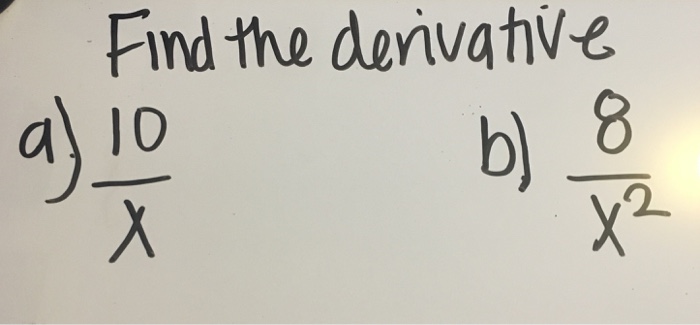 Find the derivative
a) 10/x b) 8/x²